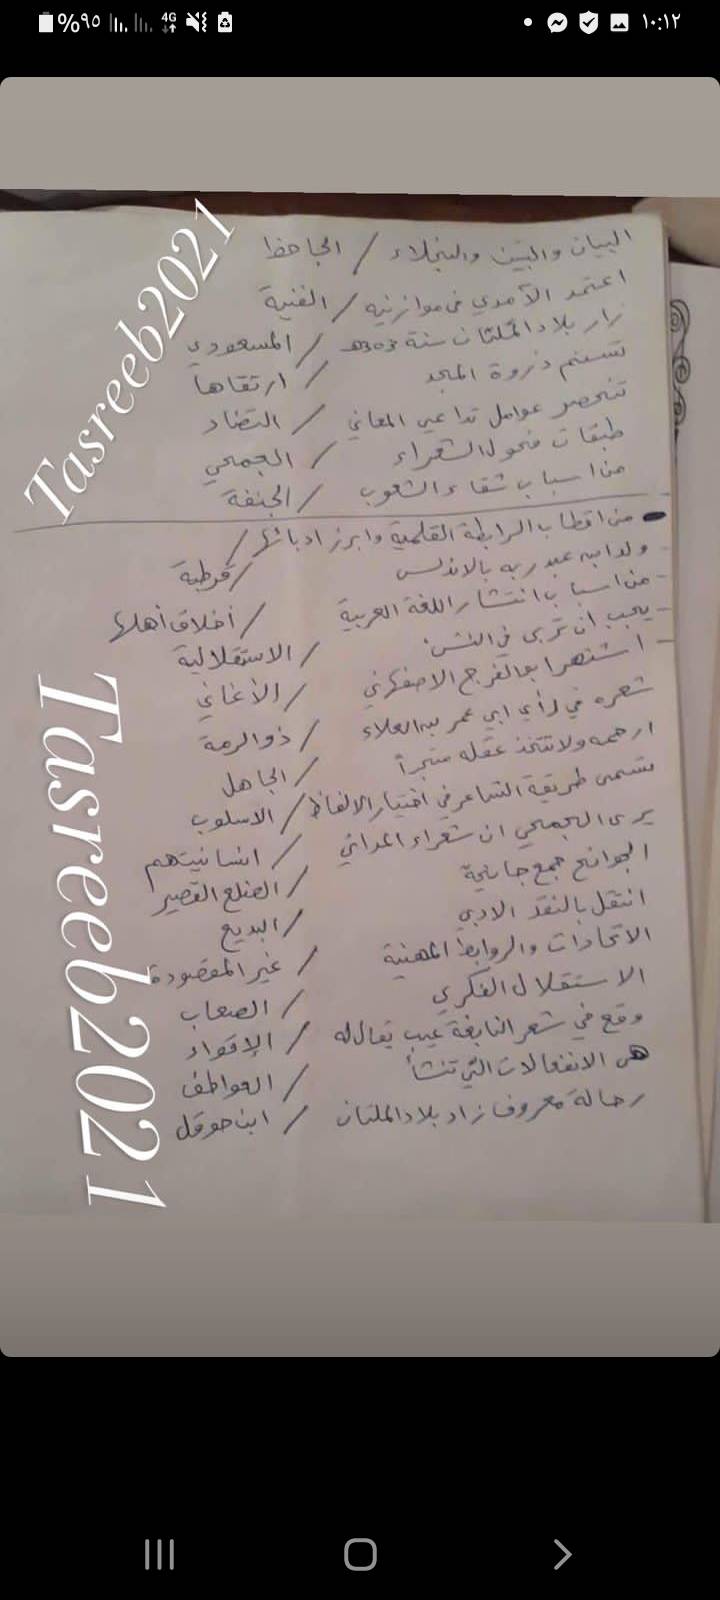 %٩٥ 4G
١٠:١٢
البيان والتبين والبخلاء / الجاحظ
اعتمد الآمدي في موازنته / الفنية
زار بلاد الملتان سنة ٣٠٣هـ / المسعودي
تسنم ذروة المجد / ارتقاها
تنحصر عوامل تداعي المعاني / التضاد
طبقات فحول الشعراء / الجمحي
من اسباب شقاء الشعوب /
من اقطاب الرابطة القلمية وابرز ادبائها /
ولد ابن عبد ربه بالاندلس / قرطبة
- من اسباب انتشار اللغة العربية / أخلاق أهلها
- يجب ان تربى في النشئ / الاستقلالية
- اشتهر ابو الفرج الاصفهاني / الأغاني
شعره في رأي ابي عمر بن العلاء / ذو الرمة
ارحمه ولا تتخذ عقله متجراً / الجاهل
تسمى طريقة الشاعر في اختيار الالفاظ / الاسلوب
يرى الجمحي ان شعراء / انسانيتهم
الجوانح جمع جانحة / الضلع القصير
انتقل بالنقد الادبي / البديع
الاتحادات والروابط المهنية / غير المقصودة
الاستقلال الفكري / الصعاب
وقع في شعر النابغة عيب يقال له / الإقواء
هي الانفعالات التي تنشأ / العواطف
رحالة معروف زار بلاد الملتان / ابن حوقل
Tasreeb2021
Tasreeb2021